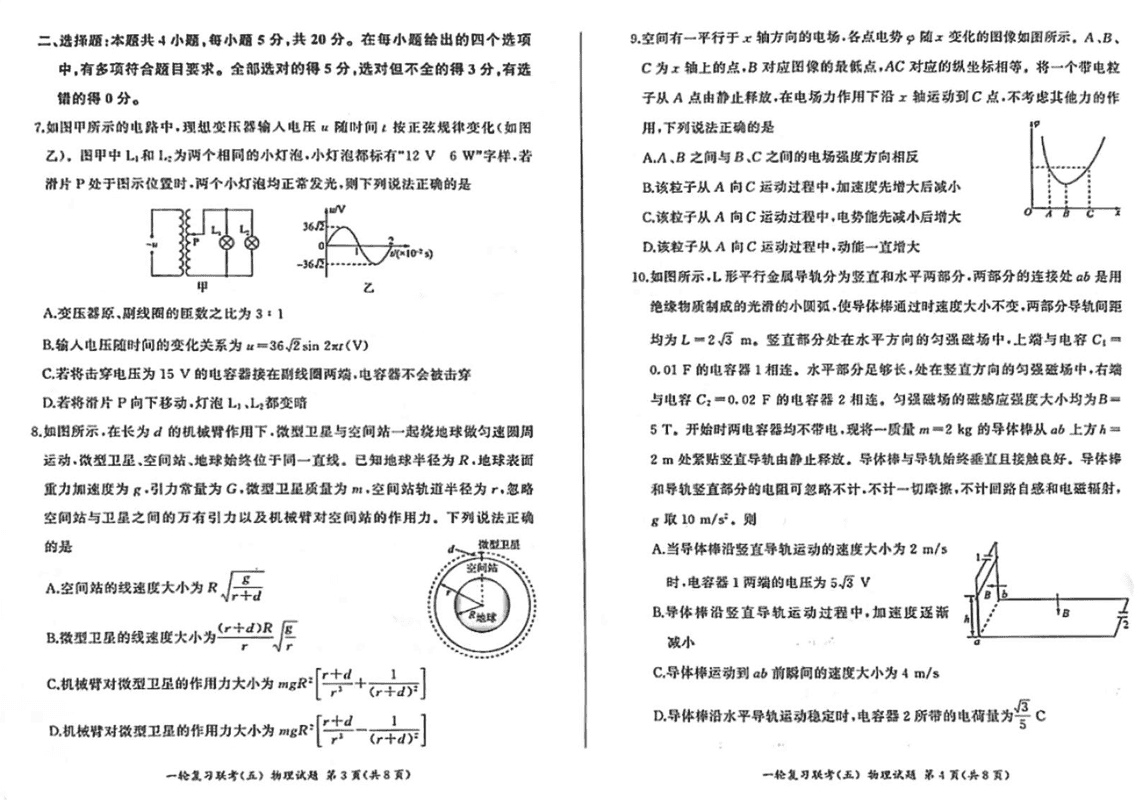 二、选择题:本题共 4 小题,每小题 5 分,共 20 分。在每小题给出的四个选项
中,有多项符合题目要求。全部选对的得 5 分,选对但不全的得 3 分,有选
错的得 0 分。
7.如图甲所示的电路中,理想变压器输入电压 u 随时间 t 按正弦规律变化(如图
乙)。图甲中 L₁和 L₂为两个相同的小灯泡,小灯泡都标有“12 V 6 W”字样,若
滑片 P 处于图示位置时,两个小灯泡均正常发光,则下列说法正确的是
~u
P
L₁
L₂
甲
u/V
36√2
0
-36√2
1
2
t/(×10⁻² s)
乙
A.变压器原、副线圈的匝数之比为 3∶1
B.输入电压随时间的变化关系为 u=36√2 sin 2πt(V)
C.若将击穿电压为 15 V 的电容器接在副线圈两端,电容器不会被击穿
D.若将滑片 P 向下移动,灯泡 L₁、L₂都变暗
8.如图所示,在长为 d 的机械臂作用下,微型卫星与空间站一起绕地球做匀速圆周
运动,微型卫星、空间站、地球始终位于同一直线。已知地球半径为 R,地球表面
重力加速度为 g,引力常量为 G,微型卫星质量为 m,空间站轨道半径为 r,忽略
空间站与卫星之间的万有引力以及机械臂对空间站的作用力。下列说法正确
的是
d
微型卫星
空间站
r
R
地球
A.空间站的线速度大小为 R√(g/(r+d))
B.微型卫星的线速度大小为 (r+d)R/r √(g/r)
C.机械臂对微型卫星的作用力大小为 mgR²[(r+d)/r³+1/(r+d)²]
D.机械臂对微型卫星的作用力大小为 mgR²[(r+d)/r³-1/(r+d)²]
一轮复习联考(五) 物理试题 第 3 页(共 8 页)
9.空间有一平行于 x 轴方向的电场,各点电势 φ 随 x 变化的图像如图所示。A、B、
C 为 x 轴上的点,B 对应图像的最低点,AC 对应的纵坐标相等。将一个带电粒
子从 A 点由静止释放,在电场力作用下沿 x 轴运动到 C 点,不考虑其他力的作
用,下列说法正确的是
A.A、B 之间与 B、C 之间的电场强度方向相反
B.该粒子从 A 向 C 运动过程中,加速度先增大后减小
C.该粒子从 A 向 C 运动过程中,电势能先减小后增大
D.该粒子从 A 向 C 运动过程中,动能一直增大
φ
O
A
B
C
x
10.如图所示,L 形平行金属导轨分为竖直和水平两部分,两部分的连接处 ab 是用
绝缘物质制成的光滑的小圆弧,使导体棒通过时速度大小不变,两部分导轨间距
均为 L=2√3 m。竖直部分处在水平方向的匀强磁场中,上端与电容 C₁=
0.01 F 的电容器 1 相连。水平部分足够长,处在竖直方向的匀强磁场中,右端
与电容 C₂=0.02 F 的电容器 2 相连。匀强磁场的磁感应强度大小均为B=
5 T。开始时两电容器均不带电,现将一质量 m=2 kg 的导体棒从 ab 上方 h=
2 m 处紧贴竖直导轨由静止释放。导体棒与导轨始终垂直且接触良好。导体棒
和导轨竖直部分的电阻可忽略不计,不计一切摩擦,不计回路自感和电磁辐射,
g 取 10 m/s²。则
A.当导体棒沿竖直导轨运动的速度大小为 2 m/s
时,电容器 1 两端的电压为 5√3 V
B.导体棒沿竖直导轨运动过程中,加速度逐渐
减小
C.导体棒运动到 ab 前瞬间的速度大小为 4 m/s
D.导体棒沿水平导轨运动稳定时,电容器 2 所带的电荷量为 √3/5 C
1
B
b
h
a
B
2
一轮复习联考(五) 物理试题 第 4 页(共 8 页)